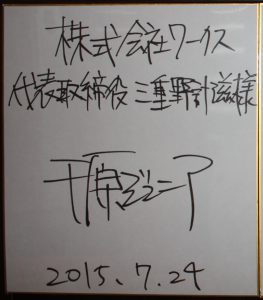 株式会社ワークス
代表取締役 三重野計滋様
千原ジュニア
2015.7.24